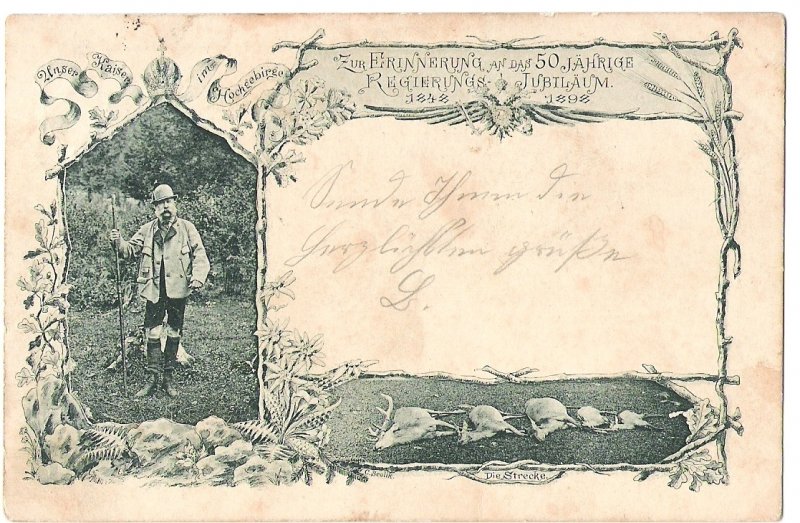 Unser Kaiser im Hochgebirge
Zur Erinnerung an das 50 jährige
Regierungs-Jubiläum.
1848 1898
Sende Ihnen die
herzlichsten grüße
L.
Die Strecke.